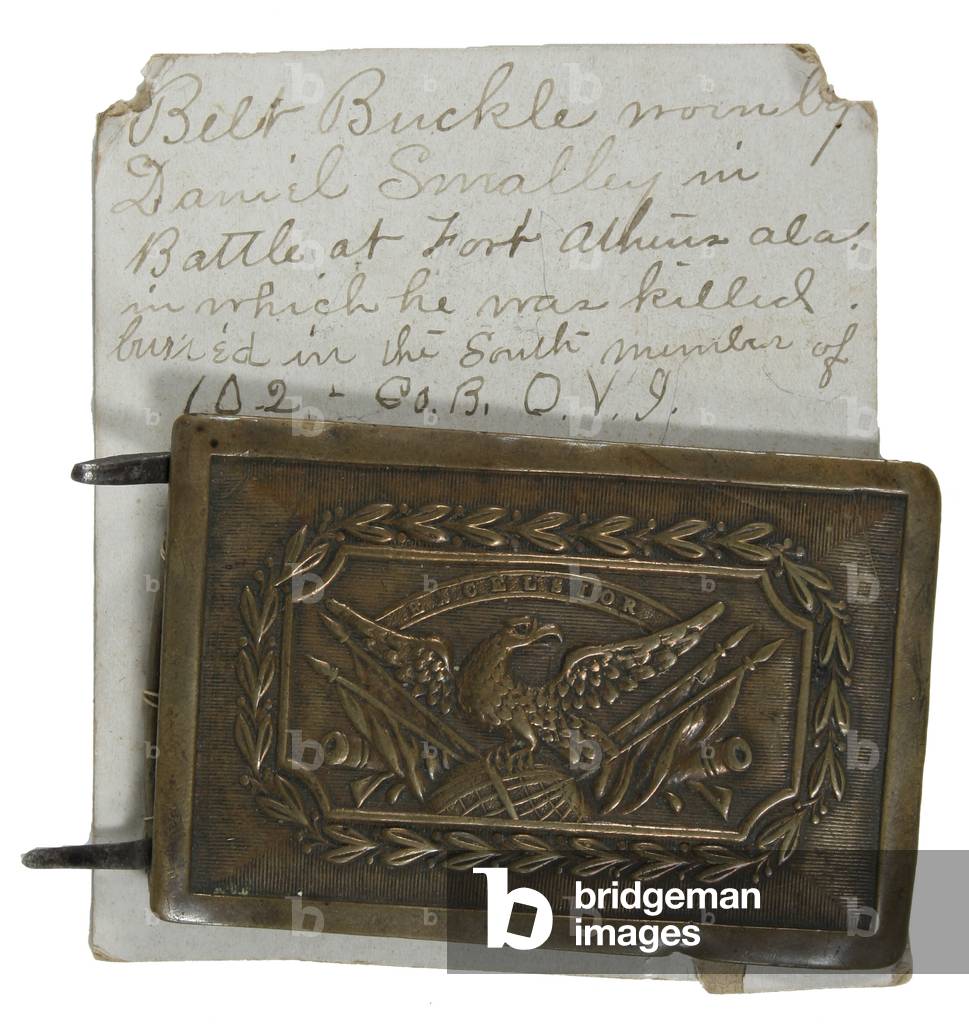 Belt Buckle worn by
Daniel Smalley in
Battle at Fort Athens ala.
in which he was killed.
burried in the South member of
102 - Co. B. O. V. I.
EXCELSIOR
b bridgeman
images